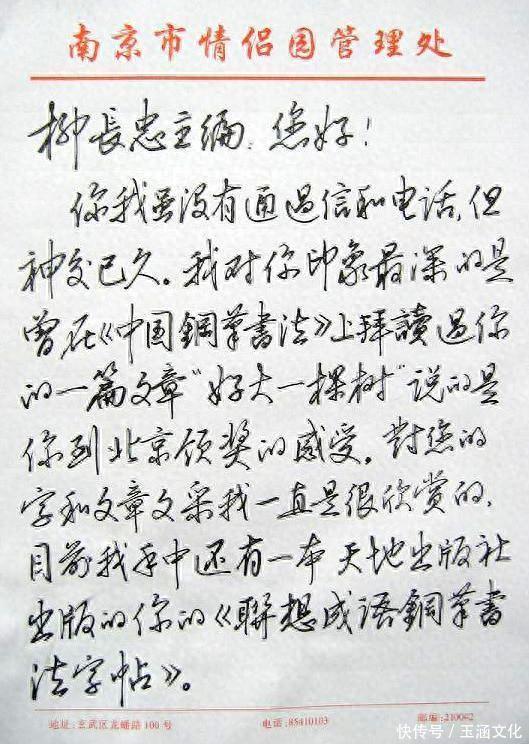 南京市情侣园管理处
柳長忠主编：您好！
你我虽没有通過信和电话，但
神交已久。我对你印象最深的是
曾在《中国鋼筆書法》上拜讀過你
的一篇文章“好大一棵树”说的是
你到北京领奖的感受。對您的
字和文章文采我一直是很欣赏的，
目前我手中还有一本天地出版社
出版的你的《聯想成语鋼筆書
法字帖》。
地址:玄武区龙蟠路100号 电话:85410103 邮编:210042
快传号／玉涵文化